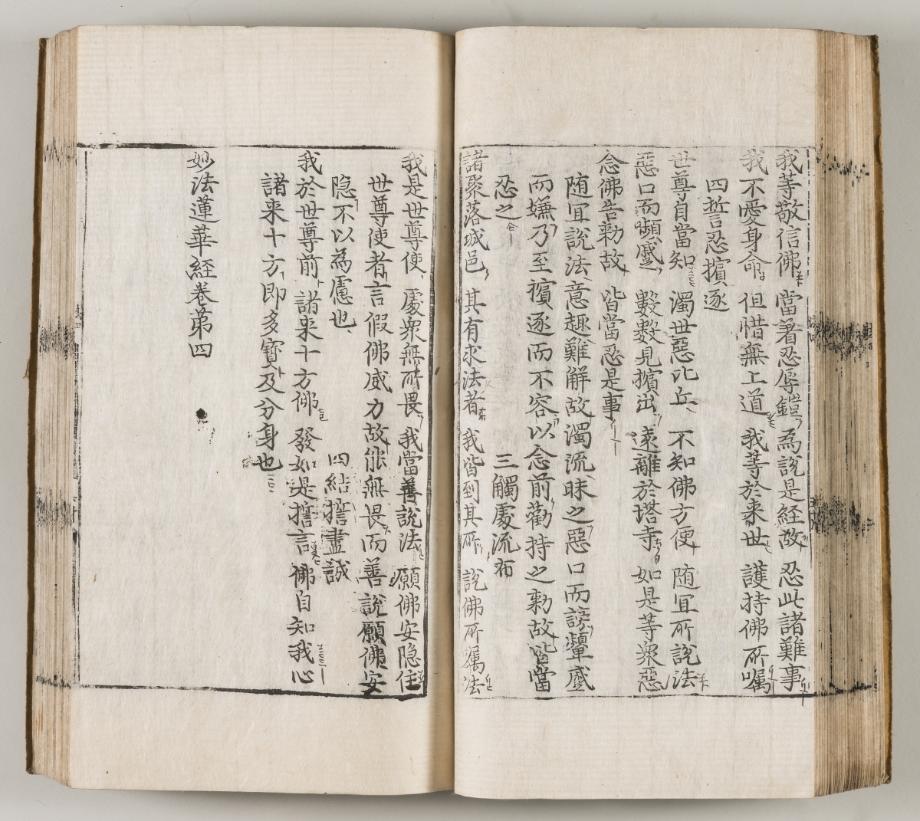 我等敬信佛 當著忍辱鎧 為說是經故 忍此諸難事
我不愛身命 但惜無上道 我等於來世 護持佛所囑
四誓忍擯逐
世尊自當知 濁世惡比丘 不知佛方便 隨宜所說法
惡口而嚬蹙 數數見擯出 遠離於塔寺 如是等衆惡
念佛告勅故 皆當忍是事
随宜說法意趣難解故濁流昧之惡口而謗顰蹙
而嫌乃至擯逐而不容以念前勸持之勅故皆當
忍之 三觸處流布
諸聚落城邑 其有求法者 我皆到其所 說佛所囑法
我是世尊使 處衆無所畏 我當善說法 願佛安隐住
世尊使者言假佛威力故能無畏而善說願佛安
隐不以為慮也 四結擔盡誠
我於世尊前 諸来十方佛 發如是擔言 佛自知我心
諸来十方即多寶及分身也
妙法蓮華経卷苐四